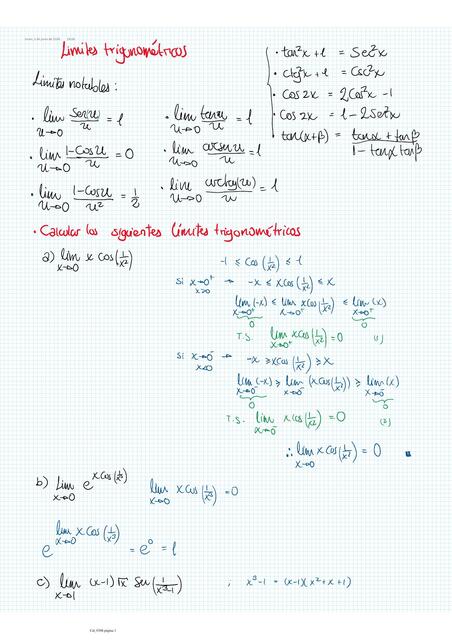 Límites trigonométricos
Límites notables:
• lim u→0 Sen u / u = 1
• lim u→0 tan u / u = 1
• lim u→0 1-Cos u / u = 0
• lim u→0 arcsen u / u = 1
• lim u→0 1-Cos u / u² = 1/2
• lim u→0 arctg(u) / u = 1
• tan²x + 1 = Sec²x
• ctg²x + 1 = Csc²x
• Cos 2x = 2Cos²x - 1
• Cos 2x = 1 - 2Sen²x
• tan(α+β) = tanα + tanβ / 1 - tanα tanβ
• Calcular los siguientes límites trigonométricos
a) lim x→0 x cos(1/x²)
-1 ≤ Cos(1/x²) ≤ 1
Si x→0⁺ x>0 → -x ≤ x Cos(1/x²) ≤ x
lim x→0⁺ (-x) ≤ lim x→0⁺ x cos(1/x²) ≤ lim x→0⁺ (x)
0 0
T.S. lim x→0⁺ x cos(1/x²) = 0 (1)
Si x→0⁻ x<0 → -x ≥ x Cos(1/x²) ≥ x
lim x→0⁻ (-x) ≥ lim x→0⁻ (x cos(1/x²)) ≥ lim x→0⁻ (x)
0 0
T.S. lim x→0⁻ x cos(1/x²) = 0 (2)
∴ lim x→0 x cos(1/x²) = 0
b) lim x→0 e^(x cos(1/x³)) lim x→0 x cos(1/x³) = 0
e^(lim x→0 x cos(1/x³)) = e⁰ = 1
c) lim x→1 (x-1)√x Sen(1/x³-1) ; x³-1 = (x-1)(x²+x+1)